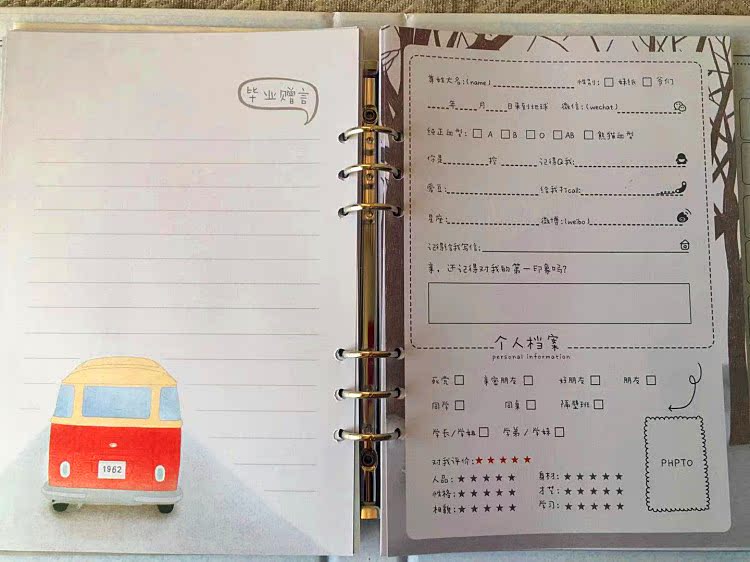 毕业赠言
1962
尊姓大名:(name) 性别: 妹纸 爷们
年 月 日来到地球 微信:(wechat)
纯正血型: A B O AB 熊猫血型
你是 控 记得Q我:
爱豆: 给我打call:
星座: 微博:(weibo)
记得给我写信:
亲,还记得对我的第一印象吗?
个人档案
personal information
死党 亲密朋友 好朋友 朋友
同学 同桌 隔壁班
学长/学姐 学弟/学妹
对我评价:★★★★★
人品:★★★★★ 身材:★★★★★
性格:★★★★★ 才艺:★★★★★
相貌:★★★★★ 学习:★★★★★
PHPTO